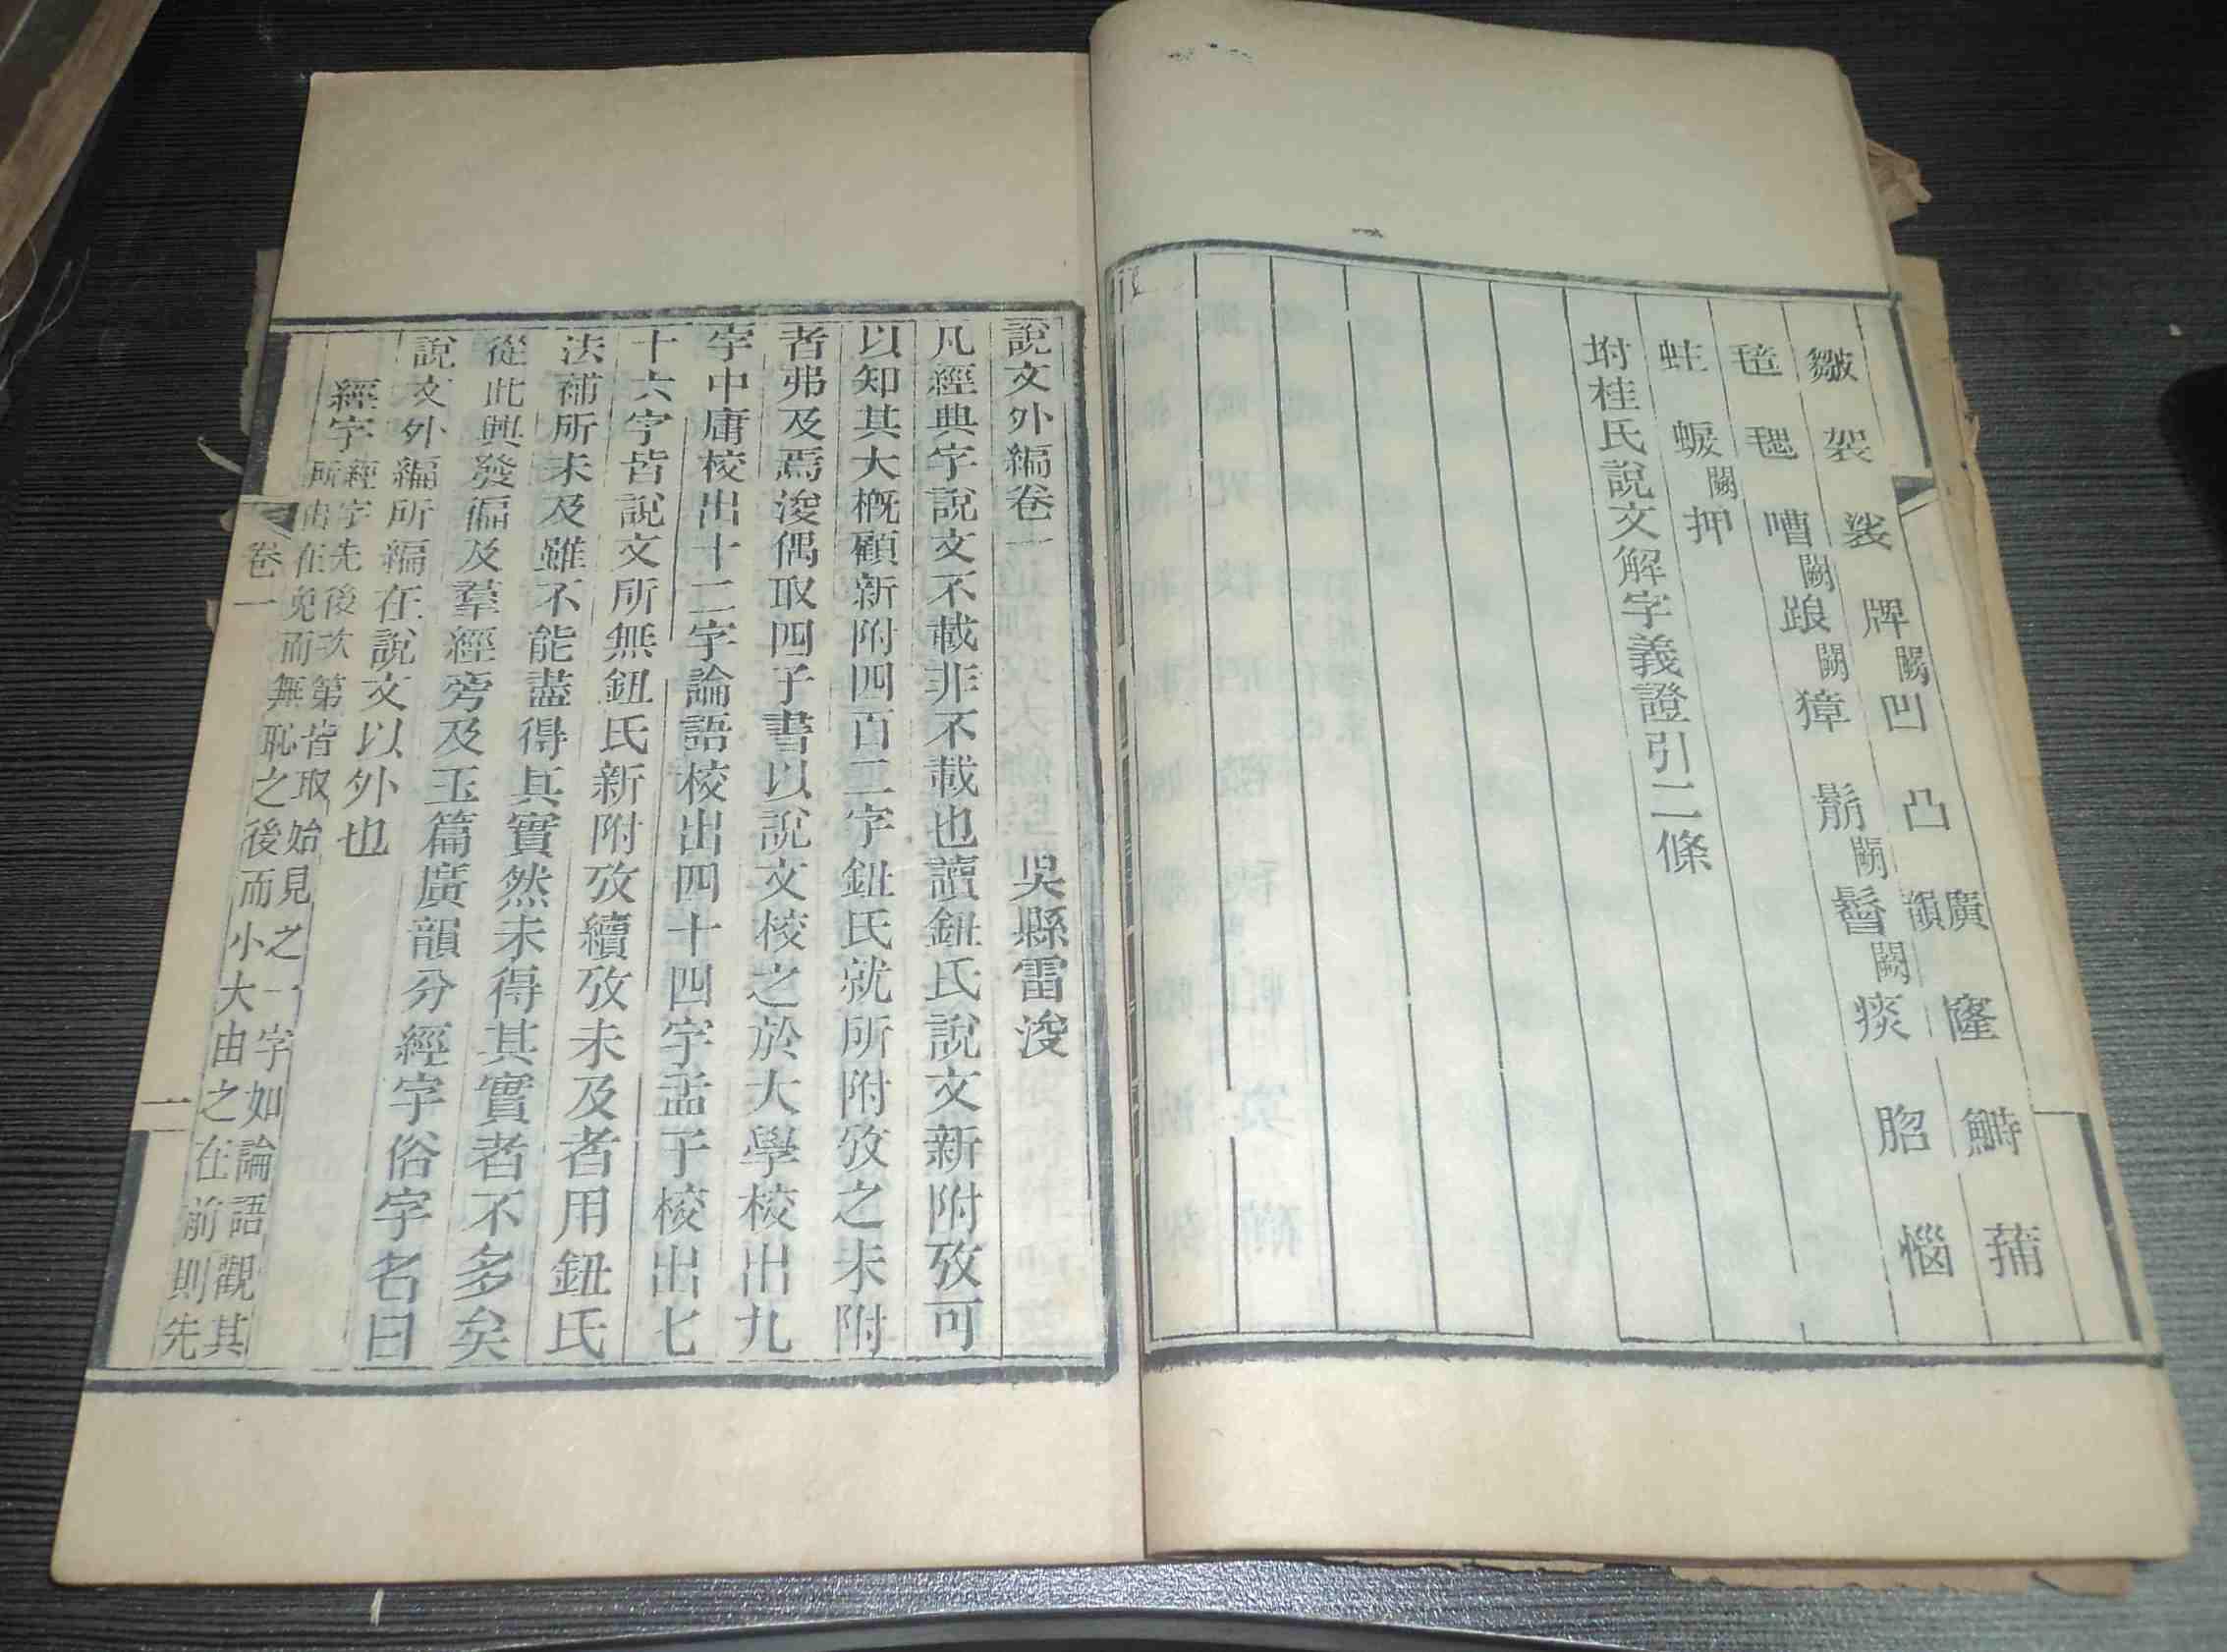 皺袈裟牌闕凹凸廣韻窿鰣蒱
氆氇嘈闕踉闕獐髴闕髫闕痰䏚惱
蛀蝘闕押
坿桂氏說文解字義證引二條
說文外編卷一 吳縣雷浚
凡經典字說文不載非不載也讀鈕氏說文新附攷可
以知其大概顧新附四百二字鈕氏就所附攷之未附
者弗及焉浚偶取四子書以說文校之於大學校出九
字中庸校出十二字論語校出四十四字孟子校出七
十六字皆說文所無鈕氏新附攷續攷未及者用鈕氏
法補所未及雖不能盡得其實然未得其實者不多矣
從此興發徧及羣經旁及玉篇廣韻分經字俗字名曰
說文外編所編在說文以外也
經字 經字先後次第皆取始見之一字如論語觀其
所由在免而無恥之後而小大由之在前則先
卷一
一